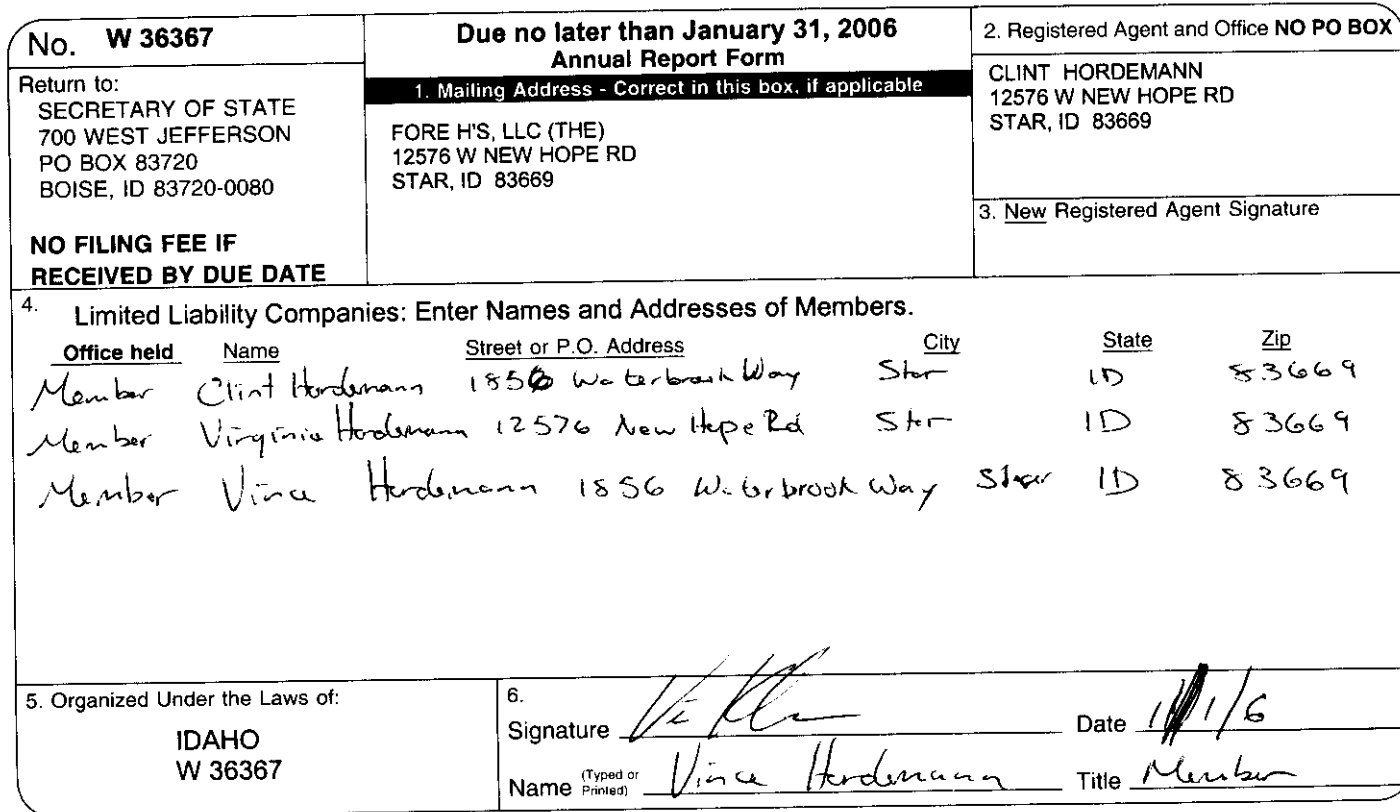 No. W 36367
Return to:
SECRETARY OF STATE
700 WEST JEFFERSON
PO BOX 83720
BOISE, ID 83720-0080
NO FILING FEE IF
RECEIVED BY DUE DATE
Due no later than January 31, 2006
Annual Report Form
1. Mailing Address - Correct in this box, if applicable
FORE H'S, LLC (THE)
12576 W NEW HOPE RD
STAR, ID 83669
2. Registered Agent and Office NO PO BOX
CLINT HORDEMANN
12576 W NEW HOPE RD
STAR, ID 83669
3. New Registered Agent Signature
4. Limited Liability Companies: Enter Names and Addresses of Members.
Office held Name Street or P.O. Address City State Zip
Member Clint Hordemann 1856 Waterbrook Way Star ID 83669
Member Virginia Hordemann 12576 New Hope Rd Star ID 83669
Member Vince Hordemann 1856 Waterbrook Way Star ID 83669
5. Organized Under the Laws of:
IDAHO
W 36367
6.
Signature
Date 1/1/6
Name (Typed or Printed) Vince Hordemann Title Member